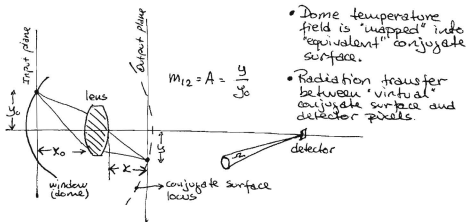 Input plane
Output plane
lens
y₀
x₀
x
y
window
(dome)
conjugate surface
locus
m₁₂ = A = y/y₀
Ω
detector
• Dome temperature
field is "mapped" into
"equivalent" conjugate
surface.
• Radiation transfer
between "virtual"
conjugate surface and
detector pixels.